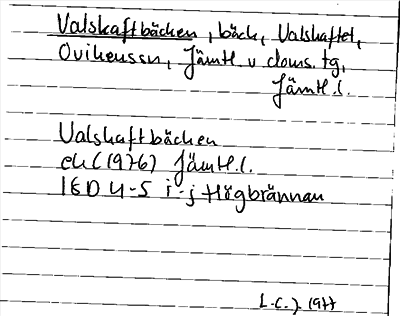 Valskaftbäcken, bäck, Valskaftet,
Ovikens sn, Jämtl. v doms. tg,
Jämtl. l.
Valskaftbäcken
ek (1976) Jämtl. l.
18D 4-5 i-j Högbrännan
L.C.J. 1977